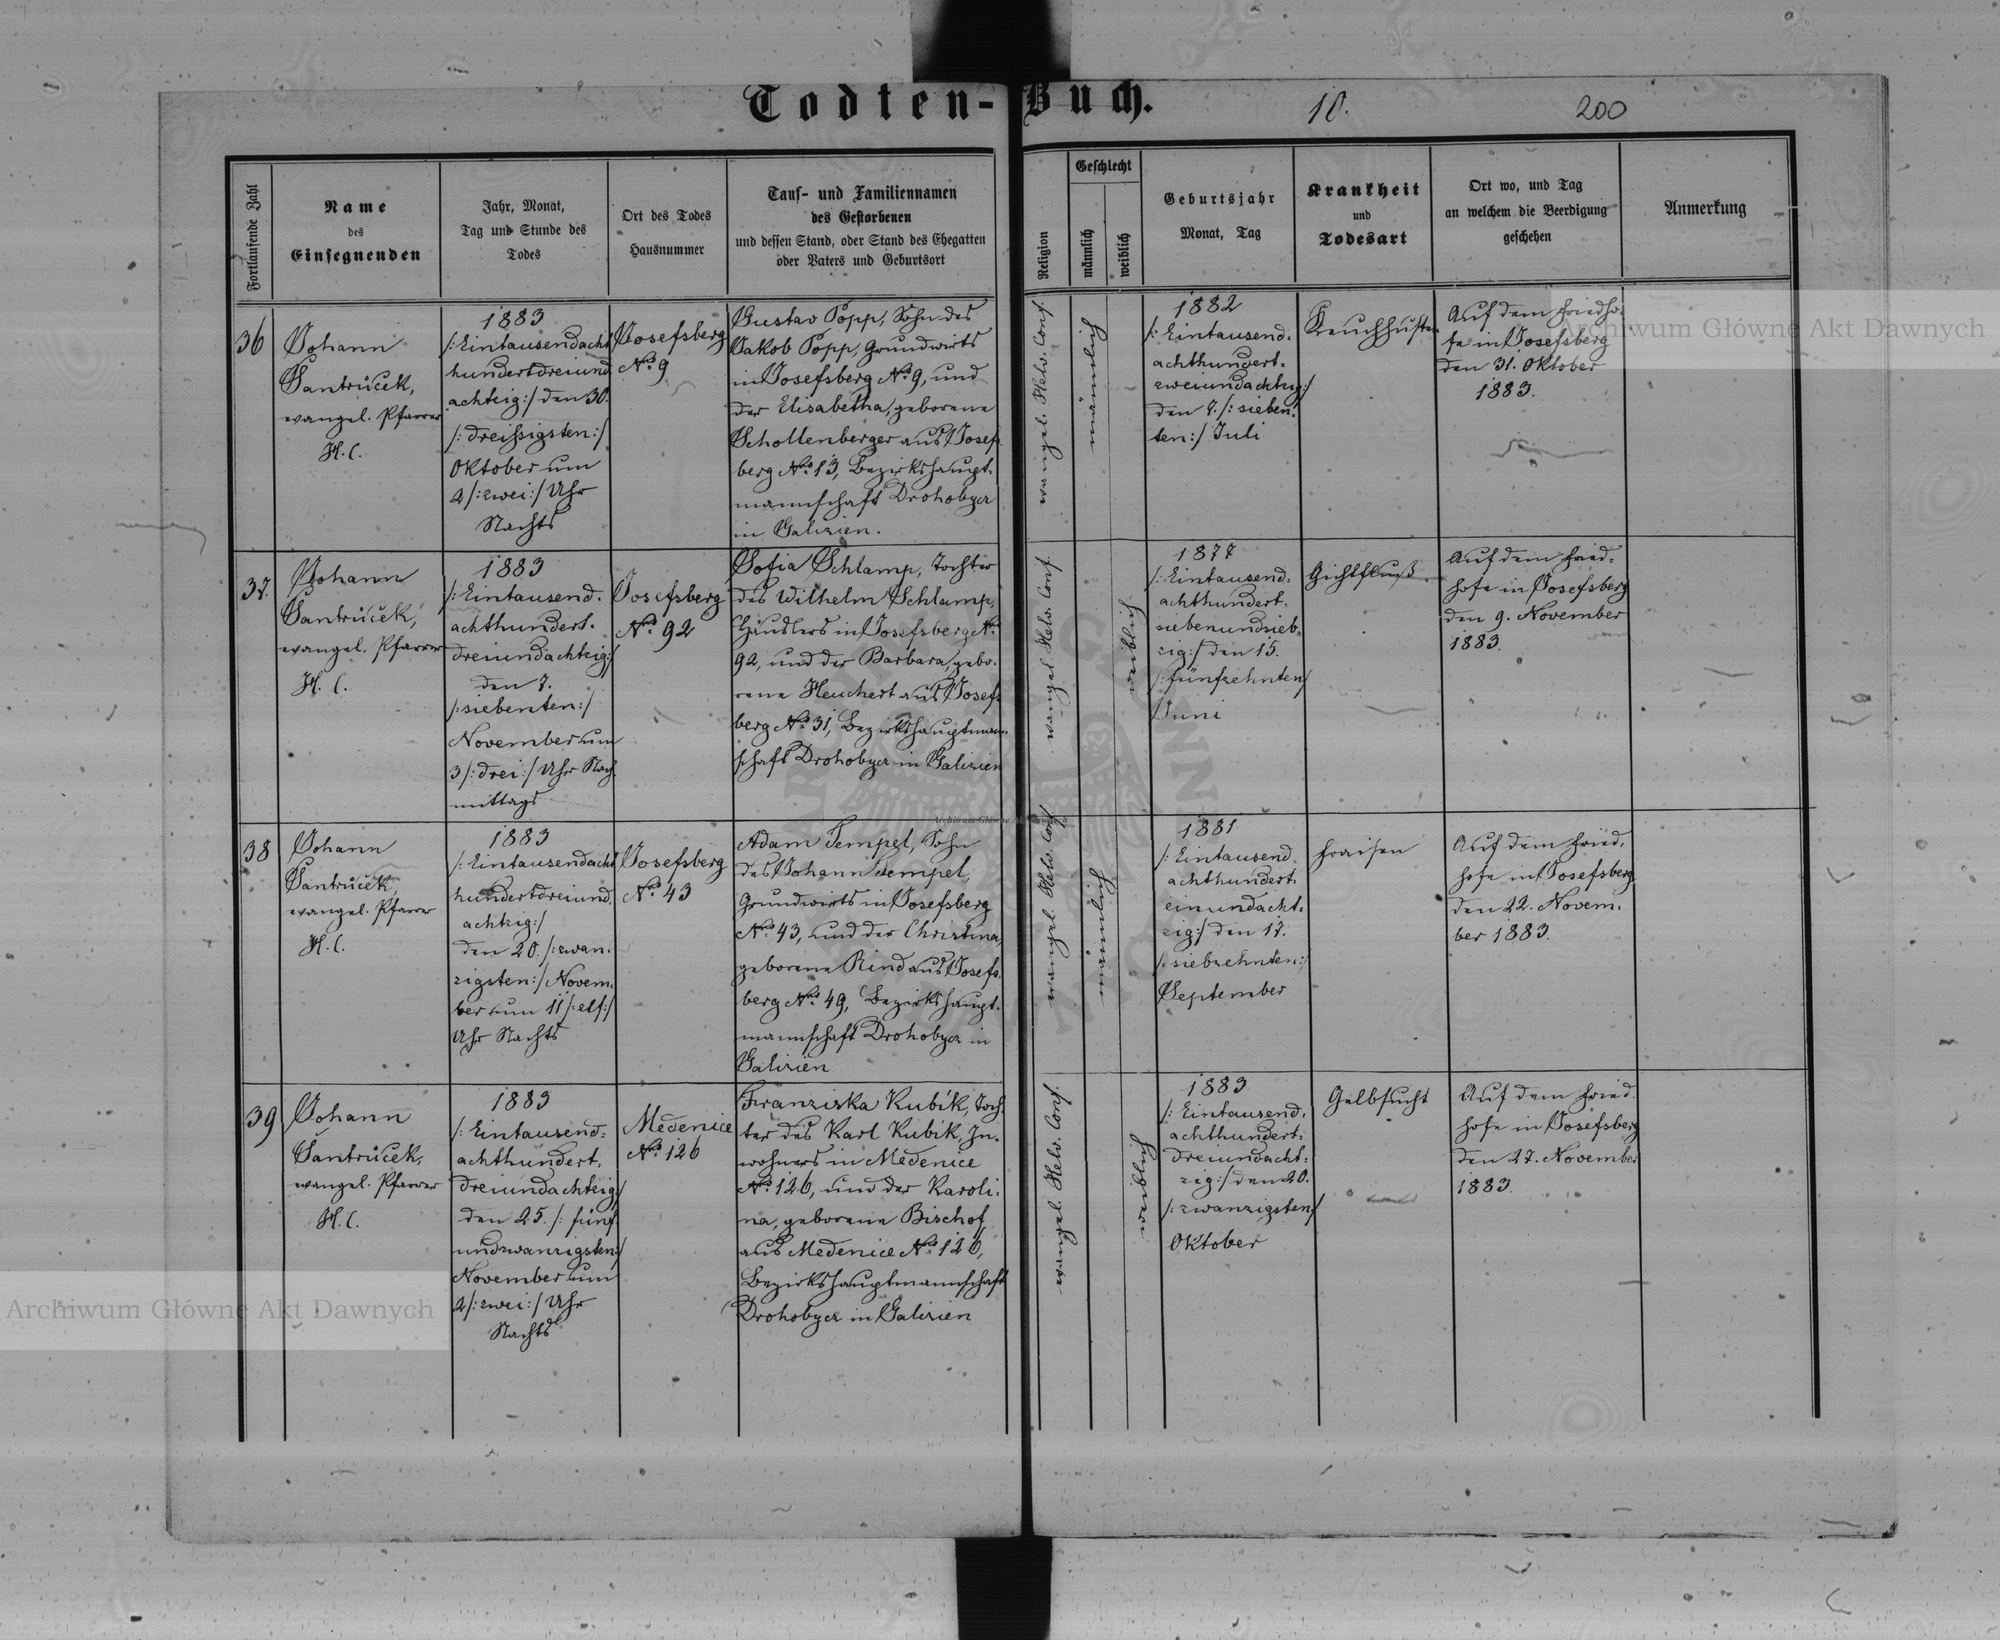 Todten-Buch.
10.
200
Fortlaufende Zahl
Name
des
Einsegnenden
Jahr, Monat,
Tag und Stunde des
Todes
Ort des Todes
Hausnummer
Tauf- und Familiennamen
des Gestorbenen
und dessen Stand, oder Stand des Ehegatten
oder Vaters und Geburtsort
Religion
Geschlecht
männlich
weiblich
Geburtsjahr
Monat, Tag
Krankheit
und
Todesart
Ort wo, und Tag
an welchem die Beerdigung
geschehen
Anmerkung
36
Johann
Šantrůček,
evangel. Pfarrer
H. C.
1883
/:Eintausendacht
hundertdreiund
achtzig:/ den 30.
/:dreißigsten:/
Oktober um
2 /:zwei:/ Uhr
Nachts
Josefsberg
No. 9
Gustav Popp, Sohn des
Jakob Popp, Grundwirts
in Josefsberg No. 9, und
der Elisabetha, geborene
Schollenberger aus Josefs
berg No. 13, Bezirkshaupt-
mannschaft Drohobycz
in Galizien.
evangel. Helv. Conf.
männlich
1882
/:Eintausend-
achthundert-
zweiundachtzig:/
den 7. /:sieben-
ten:/ Juli
Keuchhusten
Auf dem Friedho-
fe in Josefsberg
den 31. Oktober
1883.
37.
Johann
Šantrůček,
evangel. Pfarrer
H. C.
1883
/:Eintausend-
achthundert-
dreiundachtzig:/
den 7.
/:siebenten:/
November um
3 /:drei:/ Uhr Nach-
mittags
Josefsberg
No. 92
Sofia Schlamp, Tochter
des Wilhelm Schlamp,
Händlers in Josefsberg No.
92, und der Barbara, gebo-
rene Heuchert aus Josefs
berg No. 31, Bezirkshauptmann-
schaft Drohobycz in Galizien
evangel. Helv. Conf.
weiblich
1877
/:Eintausend-
achthundert-
siebenundsieb-
zig:/ den 15.
/:fünfzehnten:/
Juni
Gichtfluß
Auf dem Fried-
hofe in Josefsberg
den 9. November
1883.
38
Johann
Šantrůček,
evangel. Pfarrer
H. C.
1883
/:Eintausendacht
hundertdreiund
achtzig:/
den 20. /:zwan-
zigsten:/ Novem-
ber um 11 /:elf:/
Uhr Nachts
Josefsberg
No. 43
Adam Tempel, Sohn
des Johann Tempel,
Grundwirts in Josefsberg
No. 43, und der Christina,
geborene Rind aus Josefs-
berg No. 49, Bezirkshaupt-
mannschaft Drohobycz in
Galizien
evangel. Helv. Conf.
männlich
1881
/:Eintausend-
achthundert-
einundacht-
zig:/ den 17.
/:siebzehnten:/
September
Fraisen
Auf dem Fried-
hofe in Josefsberg
den 22. Novem-
ber 1883.
39
Johann
Šantrůček,
evangel. Pfarrer
H. C.
1883
/:Eintausend-
achthundert-
dreiundachtzig:/
den 25. /:fünf-
undzwanzigsten:/
November um
2 /:zwei:/ Uhr
Nachts
Medenice
No. 126
Franziska Kubik, Toch-
ter des Karl Kubik, In-
wohners in Medenice
No. 126, und der Karoli-
na, geborene Bischof
aus Medenice No. 126,
Bezirkshauptmannschaft
Drohobycz in Galizien
evangel. Helv. Conf.
weiblich
1883
/:Eintausend-
achthundert-
dreiundacht-
zig:/ den 20.
/:zwanzigsten:/
Oktober
Gelbsucht
Auf dem Fried-
hofe in Josefsberg
den 27. November
1883.
Archiwum Główne Akt Dawnych
Archiwum Główne Akt Dawnych
Archiwum Główne Akt Dawnych